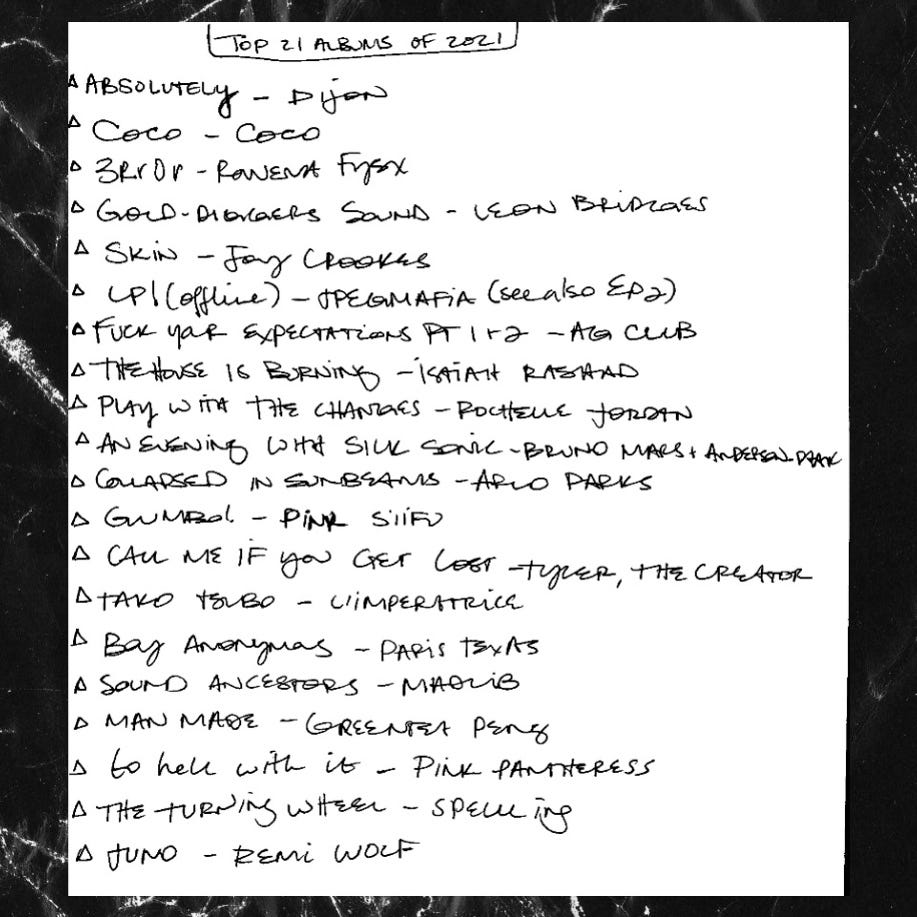 TOP 21 ALBUMS OF 2021
△ ABSOLUTELY - Dijon
△ COCO - COCO
△ 3Rr0r - ROWENA Fysx
△ GOLD-DIGGERS SOUND - LEON BRIDGES
△ SKIN - Joy CROOKES
△ LP! (offline) - JPEGMAFIA (see also EP2)
△ FUCK YOUR EXPECTATIONS PT 1+2 - AG CLUB
△ THE HOUSE IS BURNING - ISAIAH RASHAD
△ PLAY WITH THE CHANGES - ROCHELLE JORDAN
△ AN EVENING WITH SILK SONIC - BRUNO MARS + ANDERSON .PAAK
△ COLLAPSED IN SUNBEAMS - ARLO PARKS
△ GUMBO! - PINK SIIFU
△ CALL ME IF YOU GET LOST - TYLER, THE CREATOR
△ TAKO TSUBO - L'IMPERATRICE
△ Boy Anonymous - PARIS TEXAS
△ SOUND ANCESTORS - MADLIB
△ MAN MADE - GREENTEA PENG
△ to hell with it - PINK PANTHERESS
△ THE TURNING WHEEL - SPELLLING
△ JUNO - REMI WOLF